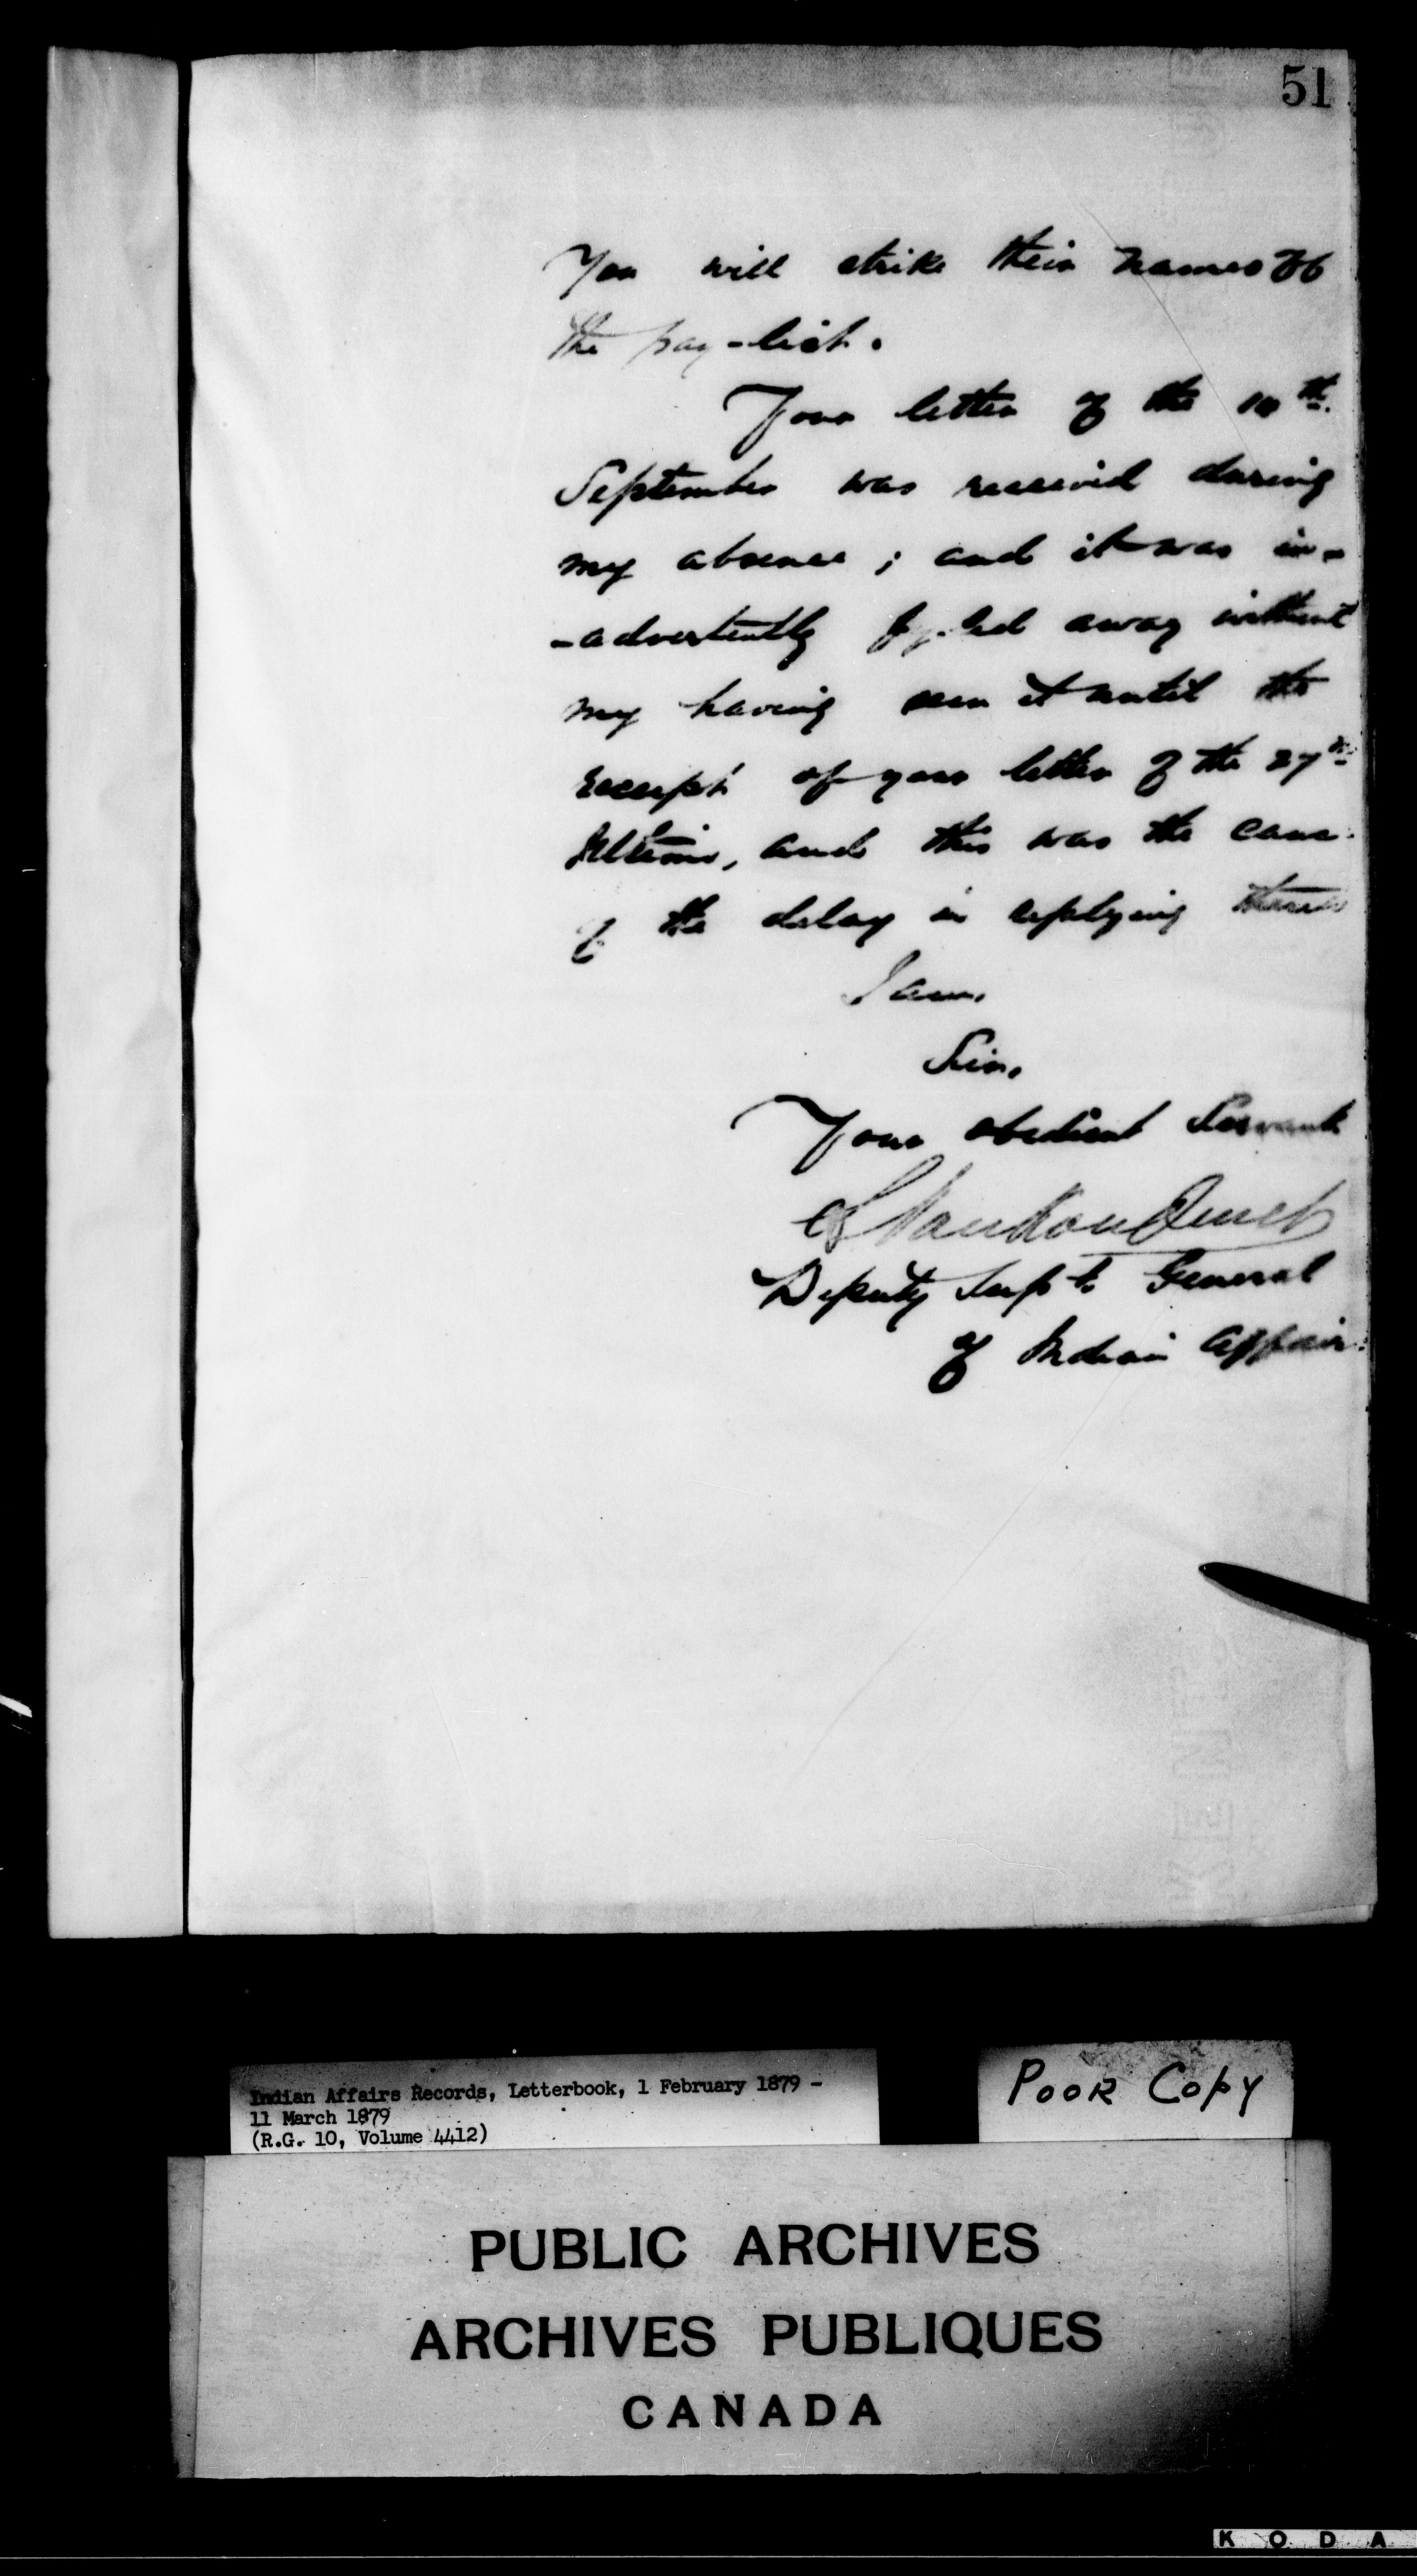 51
You will strike their names off
the pay-list.
Your letter of the 10th.
September was received during
my absence; and it was in-
-advertently fyled away without
my having seen it until the
receipt of your letter of the 27th
Ultimo, and this was the cause
of the delay in replying thereto
I am,
Sir,
Your obedient Servant
L VanKoughnet
Deputy Supt. General
of Indian Affairs
Indian Affairs Records, Letterbook, 1 February 1879 -
11 March 1879
(R.G. 10, Volume 4412)
POOR COPY
PUBLIC ARCHIVES
ARCHIVES PUBLIQUES
CANADA
K O D A